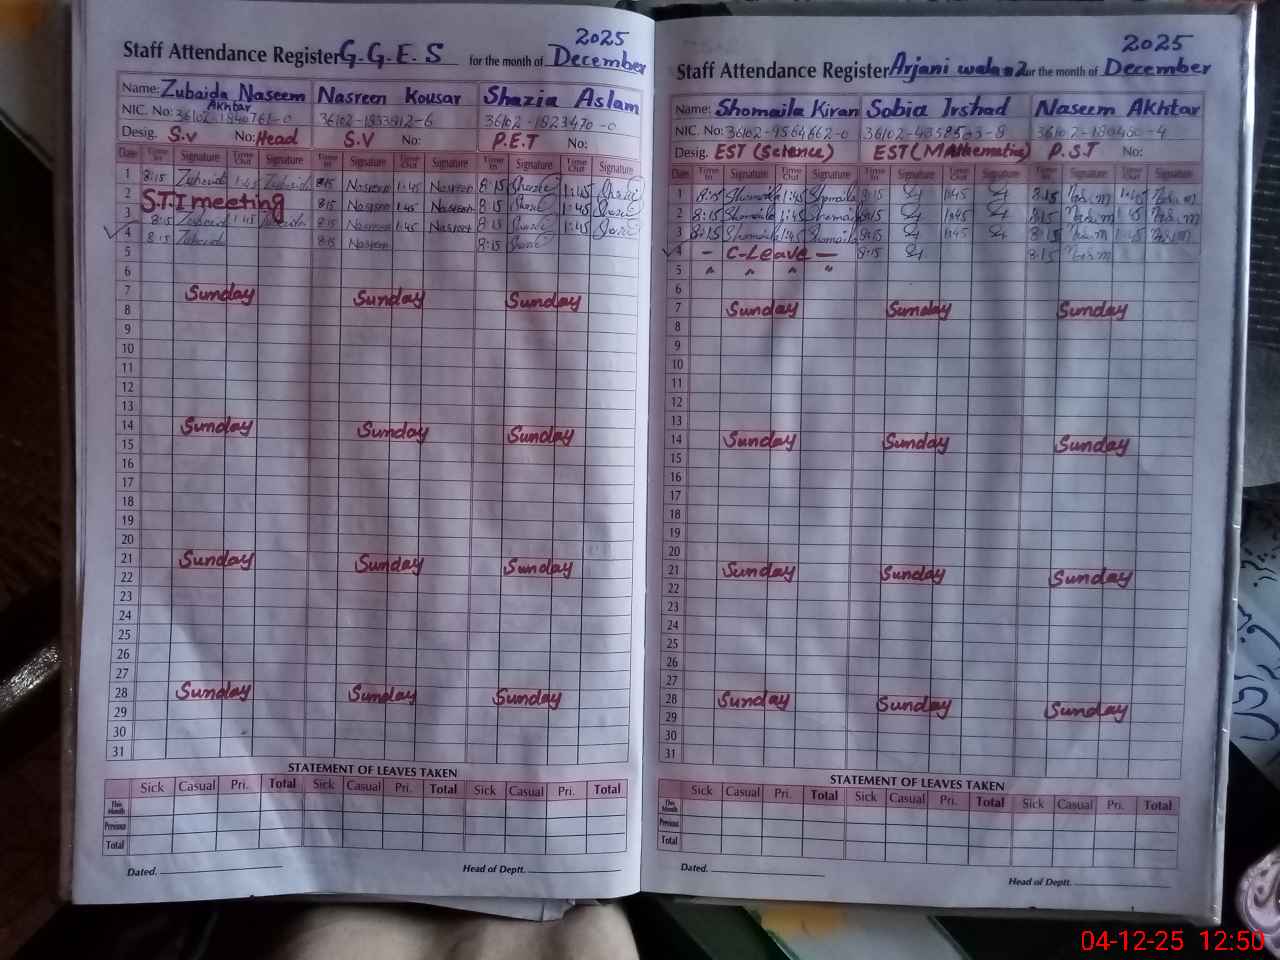 2025
Staff Attendance Register G.G.E.S for the month of December
Name: Zubaida Naseem Akhtar Nasreen Kousar Shazia Aslam
NIC. No: 36102-1840761-0 36102-1833912-6 36102-1823470-0
Desig. S.v No: Head S.V No: P.E.T No:
Date Time In Signature Time Out Signature Time In Signature Time Out Signature Time In Signature Time Out Signature
1 8:15 Zubaida 1:45 Zubaida 8:15 Nasreen 1:45 Nasreen 8:15 Shazia 1:45 Shazia
2 S.T.I meeting 8:15 Nasreen 1:45 Nasreen 8:15 Shazia 1:45 Shazia
3 8:15 Zubaida 1:45 Zubaida 8:15 Nasreen 1:45 Nasreen 8:15 Shazia 1:45 Shazia
4 8:15 Zubaida 8:15 Nasreen 8:15 Shazia
5
6
7 Sunday Sunday Sunday
8
9
10
11
12
13
14 Sunday Sunday Sunday
15
16
17
18
19
20
21 Sunday Sunday Sunday
22
23
24
25
26
27
28 Sunday Sunday Sunday
29
30
31
STATEMENT OF LEAVES TAKEN
Sick Casual Pri. Total Sick Casual Pri. Total Sick Casual Pri. Total
This Month
Previous
Total
Dated. Head of Deptt.
2025
Staff Attendance Register Arjani wala 2 for the month of December
Name: Shomaila Kiran Sobia Irshad Naseem Akhtar
NIC. No: 36102-9564662-0
Desig. EST (Science) EST (Mathematics) P.S.T No:
Date Time In Signature Time Out Signature Time In Signature Time Out Signature Time In Signature Time Out Signature
1 8:15 Shomaila 1:45 Shomaila 8:15 1:45 8:15 1:45
2 8:15 Shomaila 1:45 Shomaila 8:15 1:45 8:15 1:45
3 8:15 Shomaila 1:45 Shomaila 8:15 1:45 8:15 1:45
4 - C-Leave - 8:15 8:15
5 " " " "
6
7 Sunday Sunday Sunday
8
9
10
11
12
13
14 Sunday Sunday Sunday
15
16
17
18
19
20
21 Sunday Sunday Sunday
22
23
24
25
26
27
28 Sunday Sunday Sunday
29
30
31
STATEMENT OF LEAVES TAKEN
Sick Casual Pri. Total Sick Casual Pri. Total Sick Casual Pri. Total
This Month
Previous
Total
Dated. Head of Deptt.
04-12-25 12:50